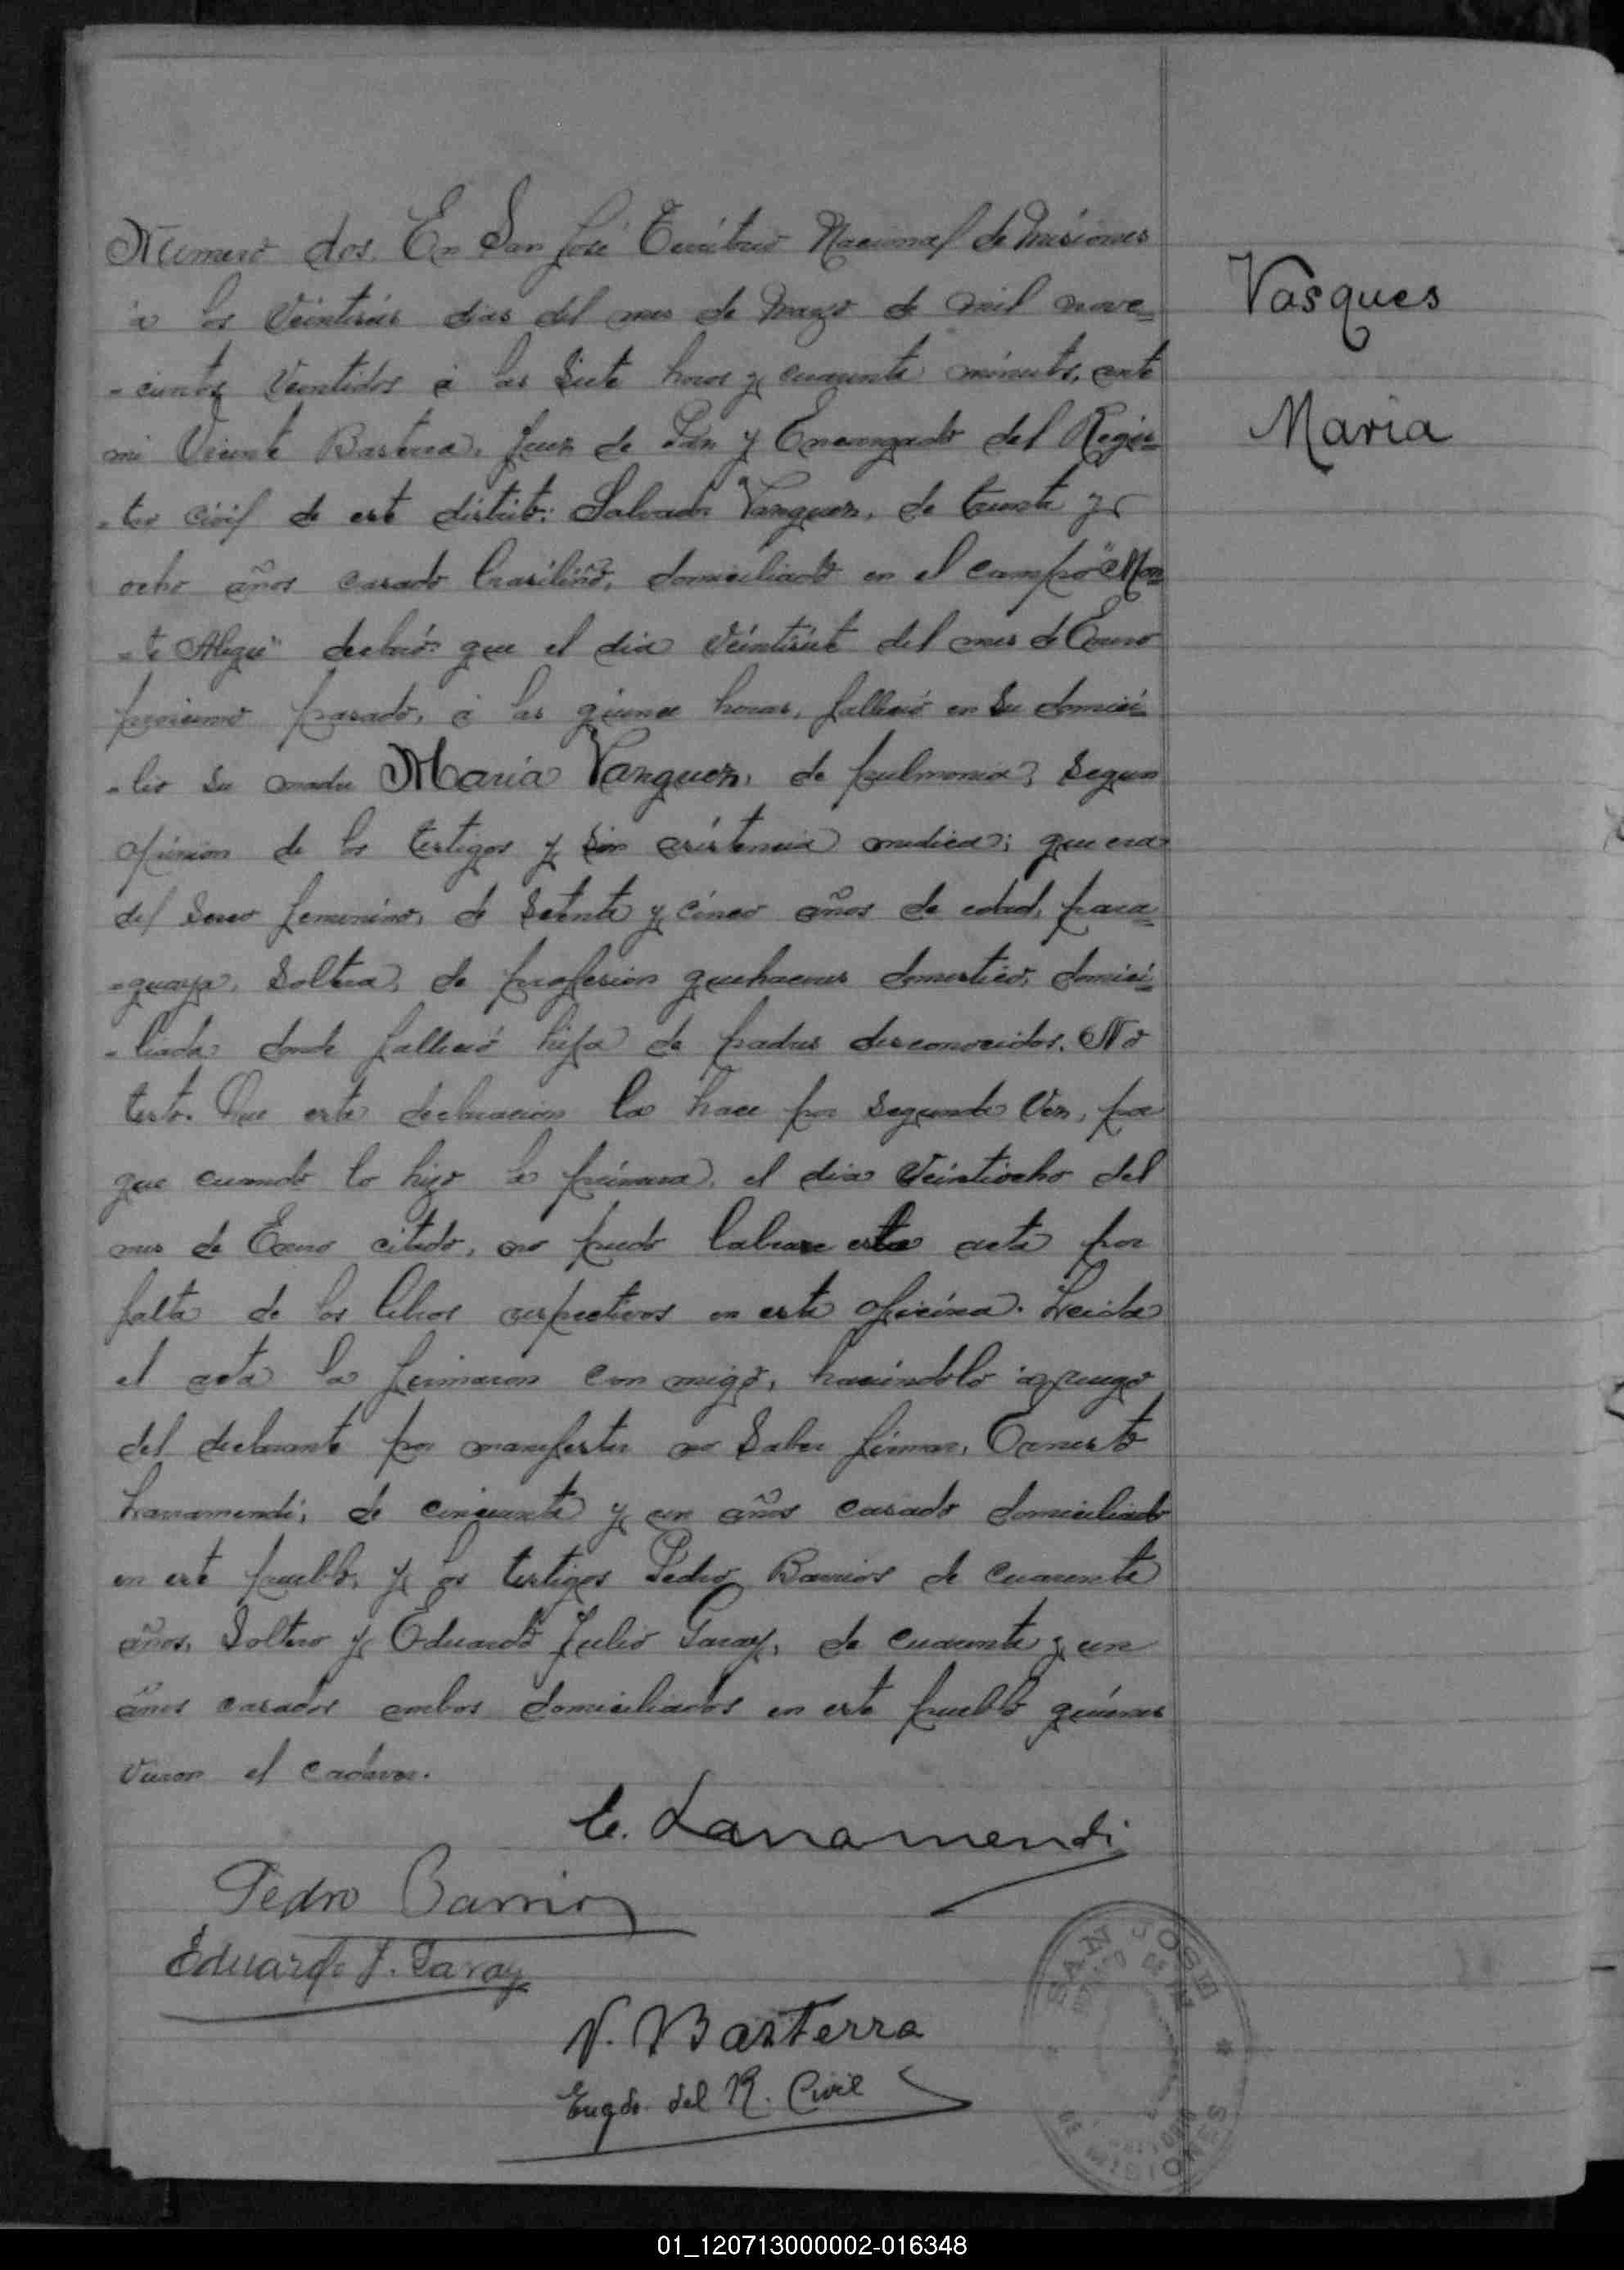 Numero dos. En San José Territorio Nacional de Misiones
á los Veintiseis dias del mes de Marzo de mil nove=
=cientos Veintidos á las Siete horas y cuarenta minutos, ante
mi Vicente Basterra, Juez de Paz y Encargado del Regis=
=tro Civil de este distrito: Salvador Vazquez, de treinta y
ocho años casado brasileño, domiciliado en el campo "Mon=
=te Alegre" declaró: que el dia Veintisiete del mes de Enero
proximo pasado, á las quince horas, falleció en su domici=
=lio su madre Maria Vazquez, de pulmonia, segun
opinion de los testigos y sin asistencia medica; que era
del sexo femenino, de Setenta y cinco años de edad, para=
=guaya, Soltera, de profesion quehaceres domestico, domici=
=liada donde falleció hija de padres desconocidos. No
testó. Que esta declaracion la hace por segunda Vez, por
que cuando lo hizo la primera, el dia Veintiocho del
mes de Enero citado, no pudo labrarse esta acta por
falta de los libros respectivos en esta oficina. Leida
el acta la firmaron con migo, haciéndolo á ruego
del declarante por manifestar no Saber firmar, Ernesto
Larramendi; de cincuenta y un años casado domiciliado
en este pueblo, y los testigos Pedro Barrios de cuarenta
años, Soltero y Eduardo Julio Garay, de cuarenta y un
años casados ambos domiciliados en este pueblo quienes
vieron el cadaver.
E. Larramendi
Pedro Barrios
Eduardo J. Garay
V. Basterra
Engdo. del R. Civil
Vasques
Maria
SAN JOSE
MISIONES
01_120713000002-016348